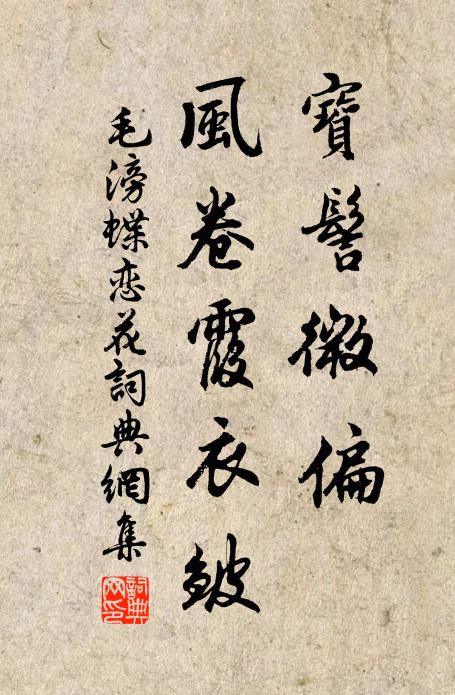 寶髻微偏
風卷霞衣皺
毛滂蝶恋花詞典網集
詞典